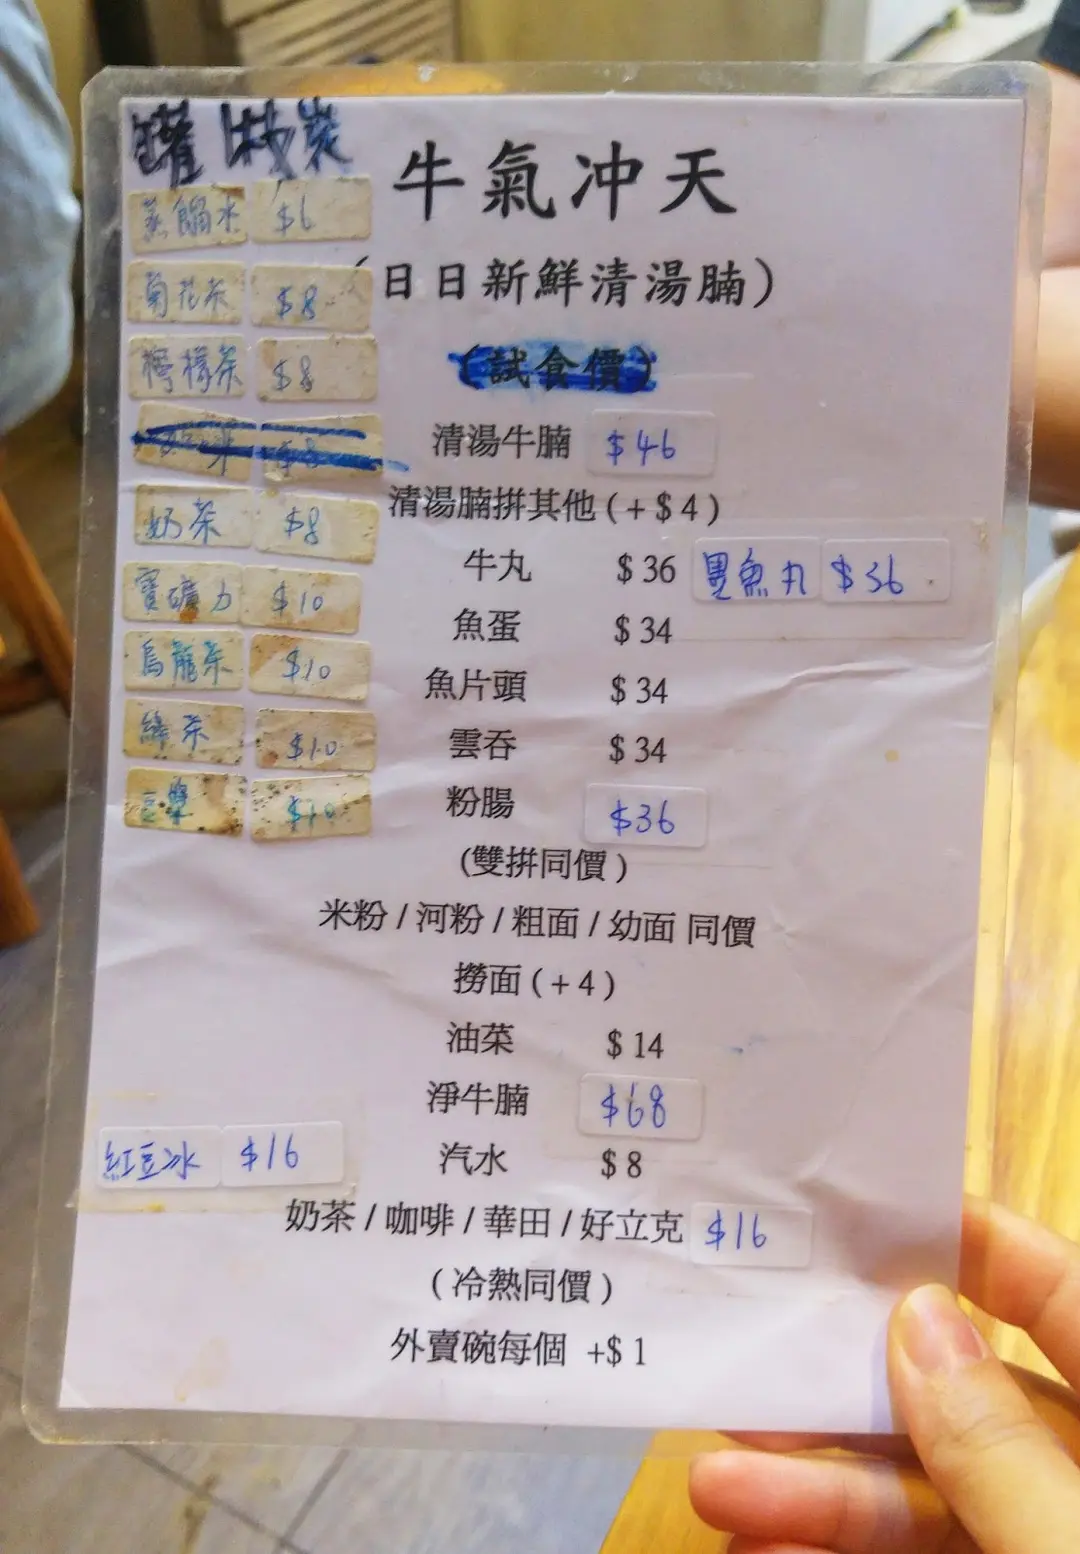 牛氣冲天
(日日新鮮清湯腩)
(試食價)
蒸餾水 $6
菊花茶 $8
檸檬茶 $8
奶茶 $8
寶礦力 $10
烏龍茶 $10
綠茶 $10
豆漿 $10
清湯牛腩 $46
清湯腩拼其他(+$4)
牛丸 $36 墨魚丸 $36
魚蛋 $34
魚片頭 $34
雲吞 $34
粉腸 $36
(雙拼同價)
米粉/河粉/粗面/幼面 同價
撈面(+4)
油菜 $14
淨牛腩 $68
紅豆冰 $16
汽水 $8
奶茶/咖啡/華田/好立克 $16
(冷熱同價)
外賣碗每個 +$1